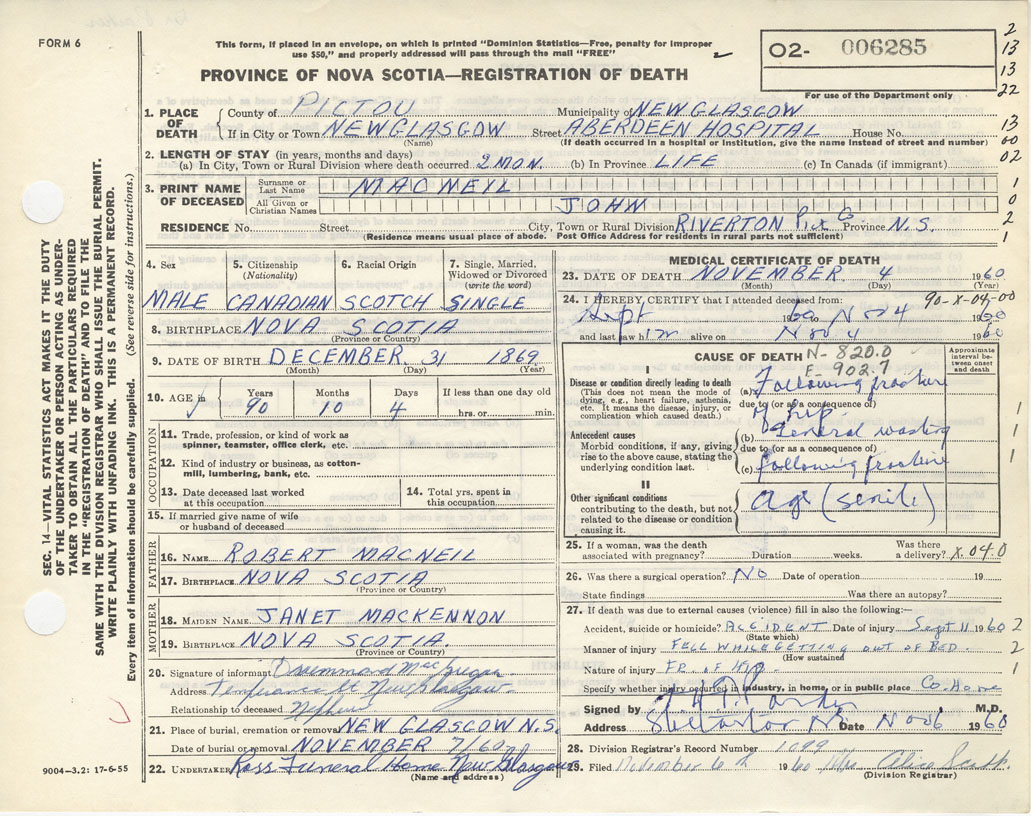 FORM 6
This form, if placed in an envelope, on which is printed "Dominion Statistics—Free, penalty for improper
use $50," and properly addressed will pass through the mail "FREE"
PROVINCE OF NOVA SCOTIA—REGISTRATION OF DEATH
O2- 006285
For use of the Department only
2
13
13
22
13
00
02
1
0
2
1
SEC. 14—VITAL STATISTICS ACT MAKES IT THE DUTY
OF THE UNDERTAKER OR PERSON ACTING AS UNDER-
TAKER TO OBTAIN ALL THE PARTICULARS REQUIRED
IN THE "REGISTRATION OF DEATH" AND TO FILE THE
SAME WITH THE DIVISION REGISTRAR WHO SHALL ISSUE THE BURIAL PERMIT.
WRITE PLAINLY WITH UNFADING INK. THIS IS A PERMANENT RECORD.
Every item of information should be carefully supplied. (See reverse side for instructions.)
1. PLACE OF DEATH
County of PICTOU Municipality of NEW GLASGOW
If in City or Town NEW GLASGOW Street ABERDEEN HOSPITAL House No.
(Name) (If death occurred in a hospital or Institution, give the name instead of street and number)
2. LENGTH OF STAY (in years, months and days)
(a) In City, Town or Rural Division where death occurred 2 MON. (b) In Province LIFE (c) In Canada (if immigrant)
3. PRINT NAME OF DECEASED
Surname or Last Name MACNEIL
All Given or Christian Names JOHN
RESIDENCE No. Street City, Town or Rural Division RIVERTON Pict Co Province N.S.
(Residence means usual place of abode. Post Office Address for residents in rural parts not sufficient)
4. Sex 5. Citizenship (Nationality) 6. Racial Origin 7. Single, Married, Widowed or Divorced (write the word)
MALE CANADIAN SCOTCH SINGLE
8. BIRTHPLACE NOVA SCOTIA
(Province or Country)
9. DATE OF BIRTH DECEMBER 31 1869
(Month) (Day) (Year)
10. AGE in Years Months Days If less than one day
90 10 4 hrs. or min.
OCCUPATION
11. Trade, profession, or kind of work as
spinner, teamster, office clerk, etc.
12. Kind of industry or business, as cotton-
mill, lumbering, bank, etc.
13. Date deceased last worked
at this occupation
14. Total yrs. spent in
this occupation
15. If married give name of wife
or husband of deceased
FATHER
16. NAME ROBERT MACNEIL
17. BIRTHPLACE NOVA SCOTIA
(Province or Country)
MOTHER
18. MAIDEN NAME JANET MACKENNON
19. BIRTHPLACE NOVA SCOTIA.
(Province or Country)
20. Signature of informant Drummond MacGregor
Address Temperance St New Glasgow
Relationship to deceased Nephew
21. Place of burial, cremation or removal NEW GLASGOW N.S.
Date of burial or removal NOVEMBER 7/60
22. UNDERTAKER Ross Funeral Home New Glasgow
(Name and address)
9004—3.2: 17-6-55
MEDICAL CERTIFICATE OF DEATH
23. DATE OF DEATH NOVEMBER 4 1960
(Month) (Day) (Year)
24. I HEREBY CERTIFY that I attended deceased from: 90-X-04-00
Sept 1960 to Nov 4 1960
and last saw him alive on Nov 4 1960
CAUSE OF DEATH N-820.0
E-902.7
Approximate interval between onset and death
I
Disease or condition directly leading to death
(This does not mean the mode of dying, e.g., heart failure, asthenia, etc. It means the disease, injury, or complication which caused death.)
(a) Following fracture
due to (or as a consequence of)
of hip.
Antecedent causes
Morbid conditions, if any, giving rise to the above cause, stating the underlying condition last.
(b) General wasting
due to (or as a consequence of)
(c) following fracture
II
Other significant conditions
contributing to the death, but not related to the disease or condition causing it.
age (senile)
1
1
1
25. If a woman, was the death
associated with pregnancy? Duration weeks. Was there a delivery? X.04.0
26. Was there a surgical operation? NO Date of operation 19
State findings Was there an autopsy?
27. If death was due to external causes (violence) fill in also the following:—
Accident, suicide or homicide? ACCIDENT Date of injury Sept 11 1960 2
(State which)
Manner of injury FELL WHILE GETTING OUT OF BED. 2
(How sustained)
Nature of injury FR. OF HIP 1
Specify whether injury occurred in industry, in home, or in public place Co. Home
Signed by M.D.
Address Date Nov 6 1960
28. Division Registrar's Record Number 1099
29. Filed November 6th 1960 Alice Smith
(Division Registrar)